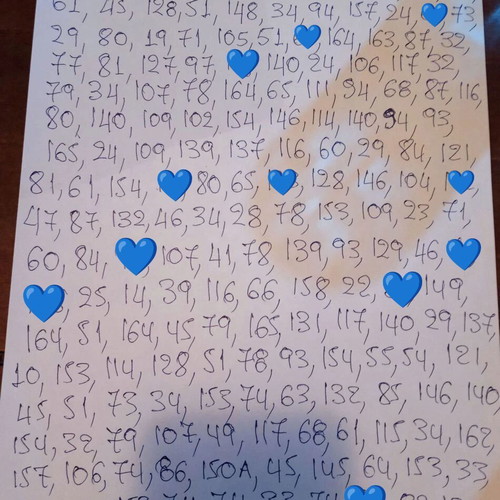 61, 45, 128, 51, 148, 34, 94, 157, 24, 73,
29, 80, 19, 71, 105, 51, 164, 163, 87, 32,
77, 81, 127, 97, 140, 24, 106, 117, 32,
79, 34, 107, 78, 164, 65, 111, 94, 68, 87, 116,
80, 140, 109, 102, 154, 146, 114, 140, 94, 93,
165, 24, 109, 139, 137, 116, 60, 29, 84, 121,
81, 61, 154, 80, 65, 128, 146, 104,
47, 87, 132, 46, 34, 28, 78, 153, 109, 23, 71,
60, 84, 107, 41, 78, 139, 93, 129, 46,
25, 14, 39, 116, 66, 158, 22, 149,
164, 51, 164, 45, 79, 165, 131, 117, 140, 29, 137
10, 153, 114, 128, 51, 78, 93, 154, 55, 54, 121,
45, 51, 73, 34, 153, 74, 63, 132, 85, 146, 140
154, 32, 79, 107, 49, 117, 68, 61, 115, 34, 162
157, 106, 74, 86, 150A, 45, 145, 64, 153, 33